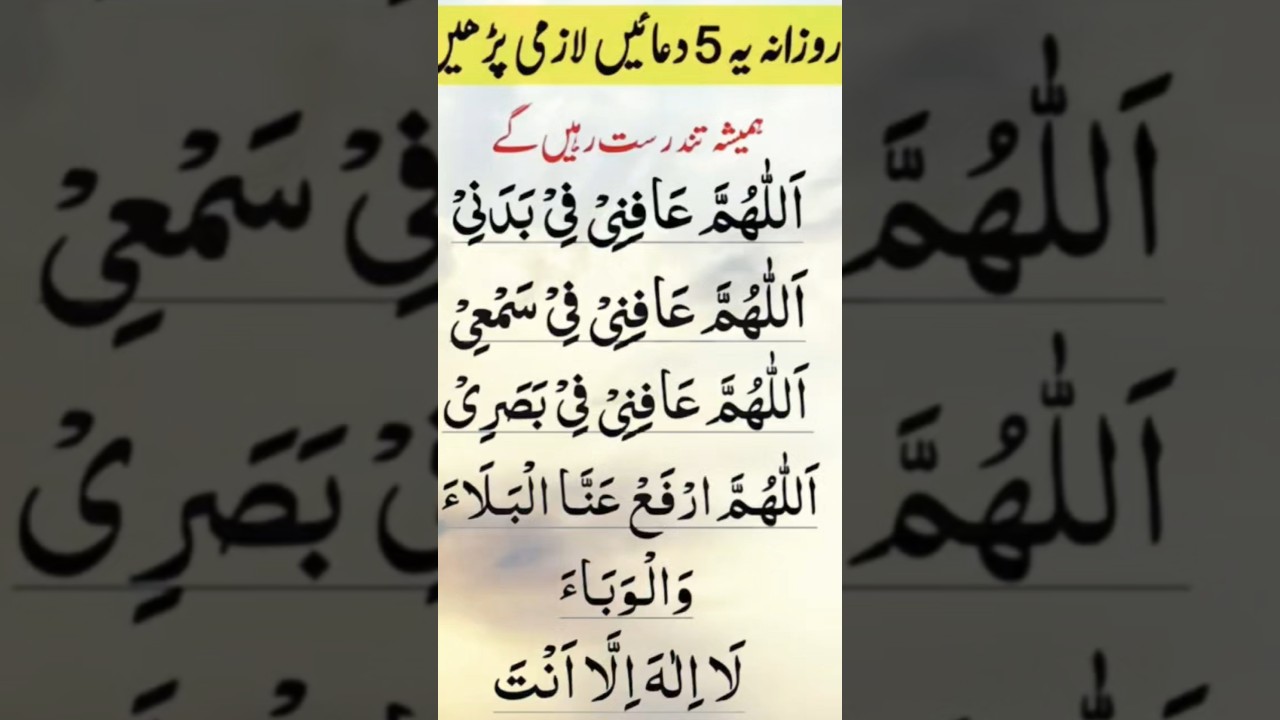 روزانہ یہ 5 دعائیں لازمی پڑھیں
ہمیشہ تندرست رہیں گے
اَللّٰهُمَّ عَافِنِیْ فِیْ بَدَنِیْ
اَللّٰهُمَّ عَافِنِیْ فِیْ سَمْعِیْ
اَللّٰهُمَّ عَافِنِیْ فِیْ بَصَرِیْ
اَللّٰهُمَّ ارْفَعْ عَنَّا الْبَلَاءَ
وَالْوَبَاءَ
لَا اِلٰهَ اِلَّا اَنْتَ